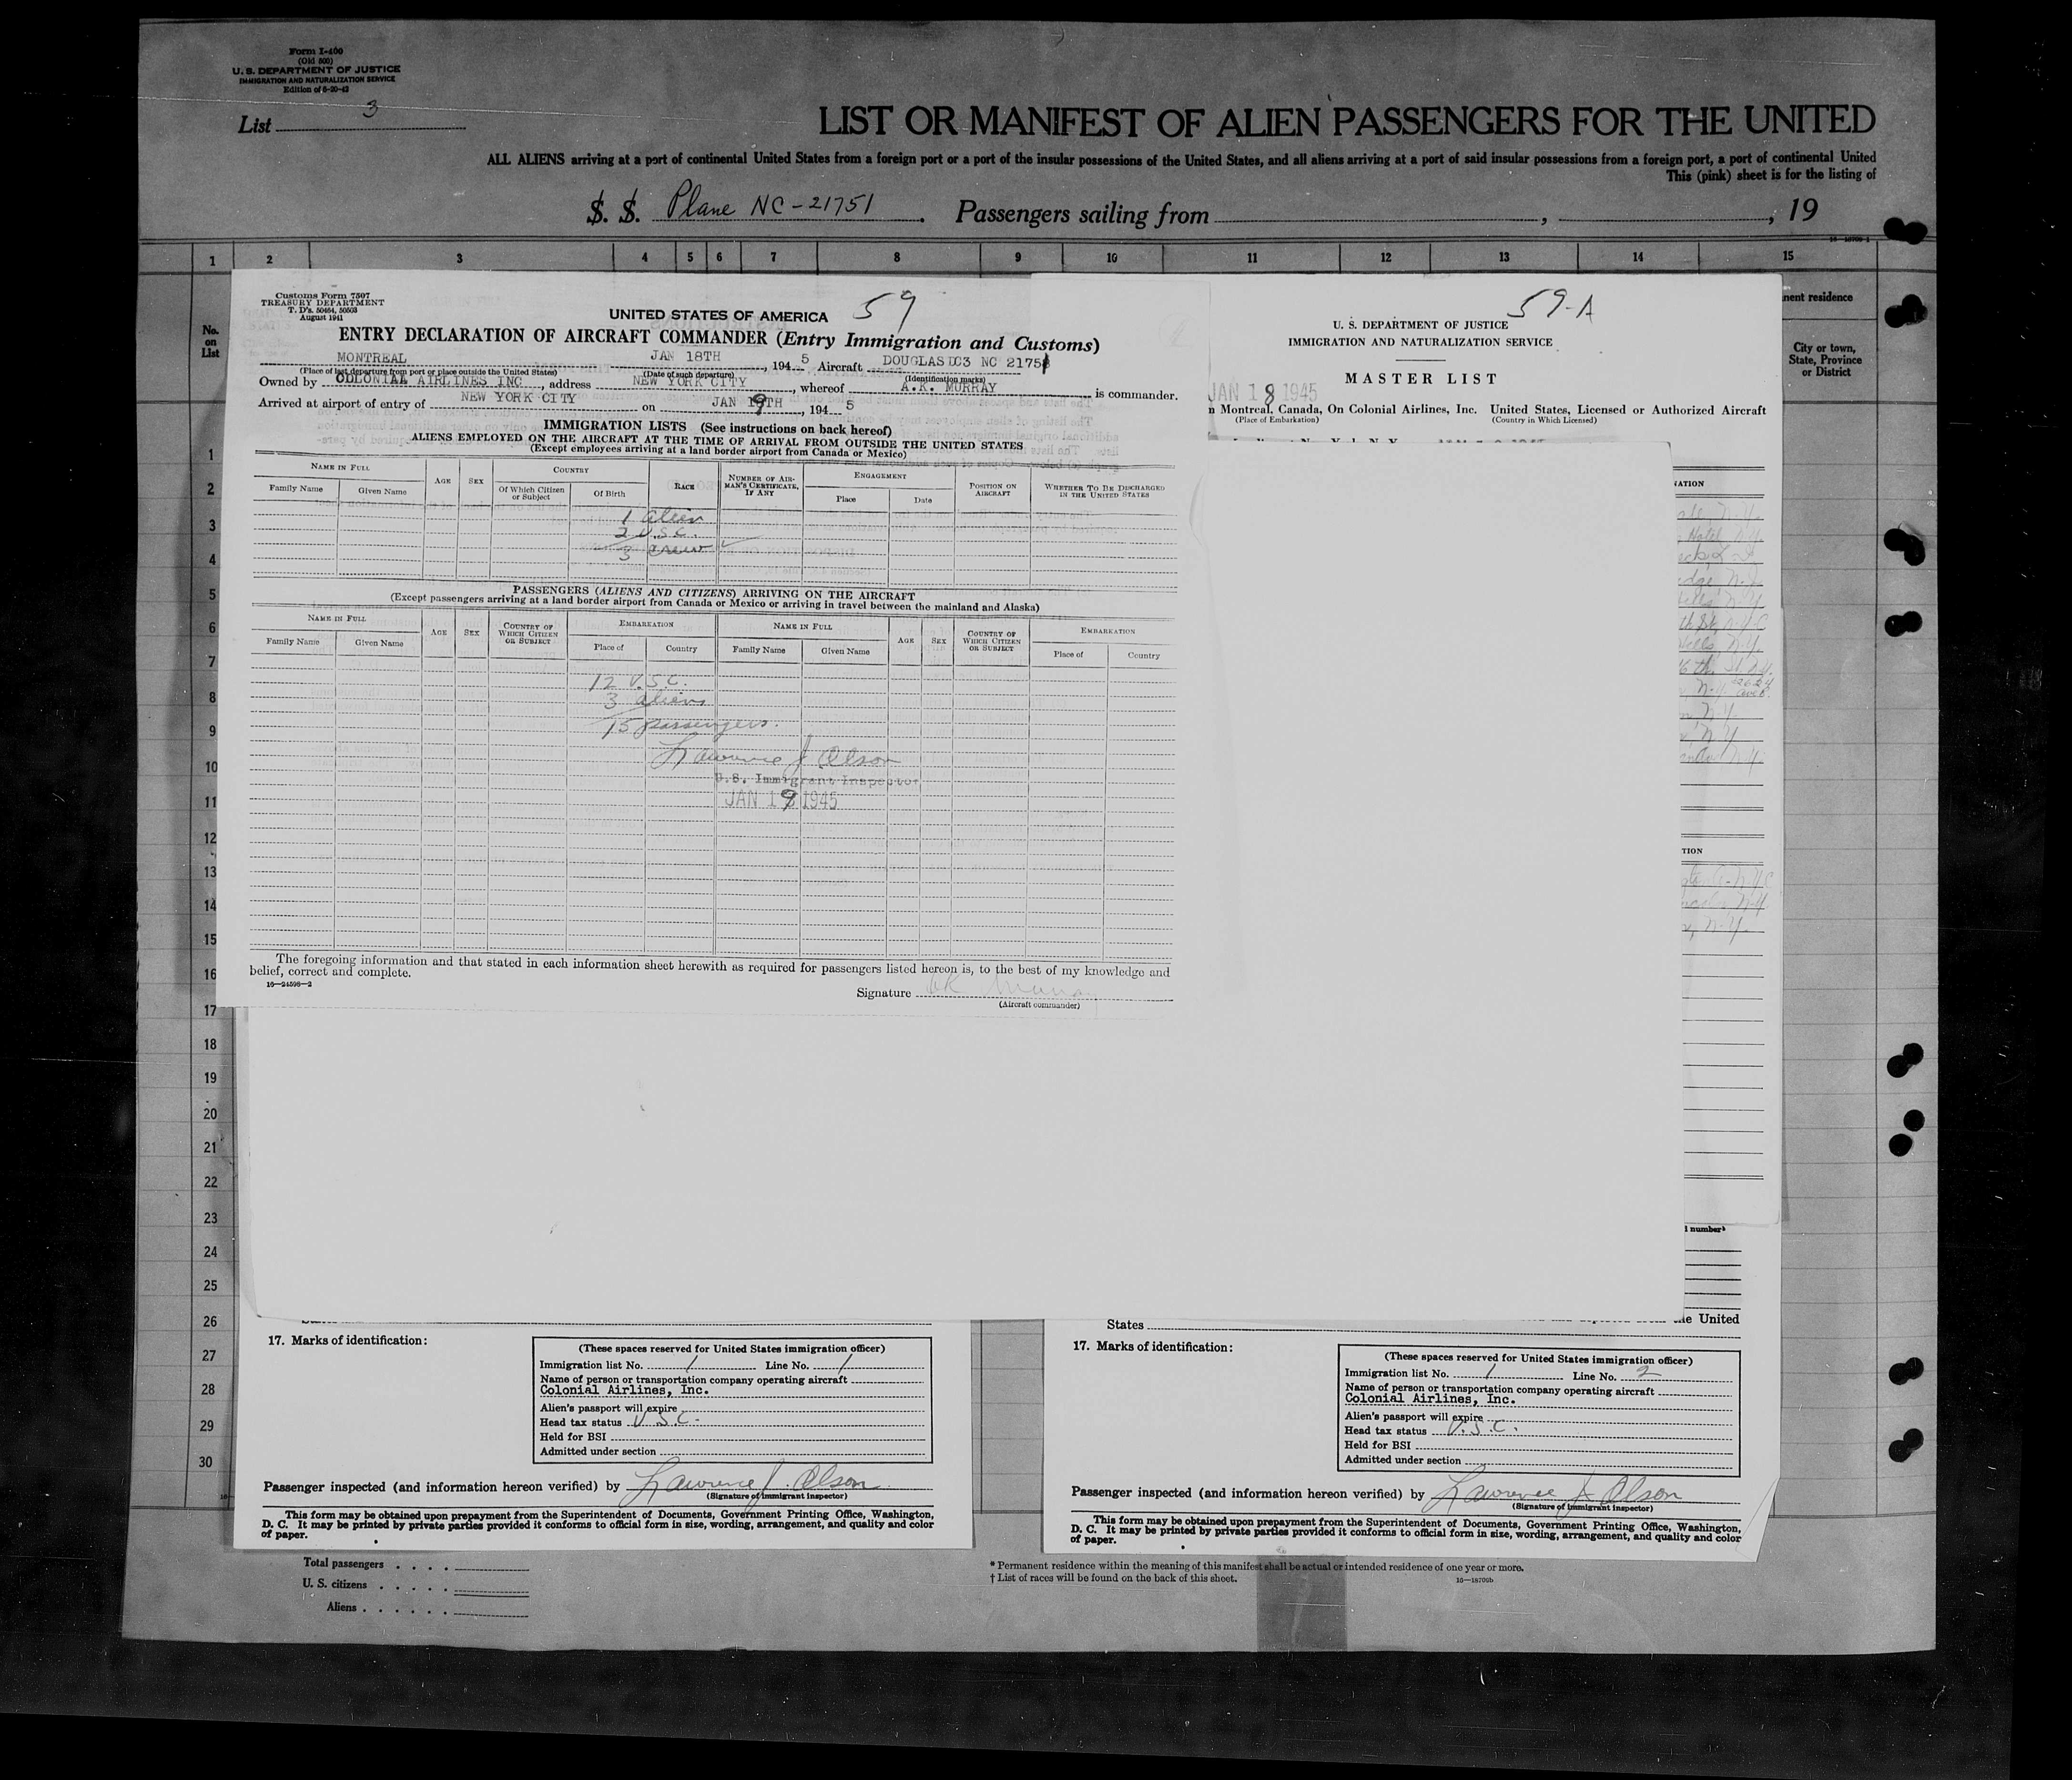 Form I-400
(Old 500)
U. S. DEPARTMENT OF JUSTICE
IMMIGRATION AND NATURALIZATION SERVICE
Edition of 6-20-42
List 3
LIST OR MANIFEST OF ALIEN PASSENGERS FOR THE UNITED
ALL ALIENS arriving at a port of continental United States from a foreign port or a port of the insular possessions of the United States, and all aliens arriving at a port of said insular possessions from a foreign port, a port of continental United
This (pink) sheet is for the listing of
S. S. Plane NC-21751. Passengers sailing from , , 19
1 2 3 4 5 6 7 8 9 10 11 12 13 14 15
No. on List
nent residence
City or town, State, Province or District
Customs Form 7507
TREASURY DEPARTMENT
T. D's. 50464, 50503
August 1941
59
UNITED STATES OF AMERICA
ENTRY DECLARATION OF AIRCRAFT COMMANDER (Entry Immigration and Customs)
MONTREAL JAN 18TH , 194 5 Aircraft DOUGLAS DC3 NC 21751
(Place of last departure from port or place outside the United States) (Date of such departure) (Identification marks)
Owned by COLONIAL AIRLINES INC , address NEW YORK CITY , whereof A.K. MURRAY is commander.
Arrived at airport of entry of NEW YORK CITY on JAN 19TH , 194 5
IMMIGRATION LISTS (See instructions on back hereof)
ALIENS EMPLOYED ON THE AIRCRAFT AT THE TIME OF ARRIVAL FROM OUTSIDE THE UNITED STATES
(Except employees arriving at a land border airport from Canada or Mexico)
NAME IN FULL
Family Name Given Name
AGE SEX
COUNTRY
Of Which Citizen or Subject Of Birth
RACE
NUMBER OF AIRMAN'S CERTIFICATE, IF ANY
ENGAGEMENT
Place Date
POSITION ON AIRCRAFT
WHETHER TO BE DISCHARGED IN THE UNITED STATES
1 alien
2 U.S.C.
3 crew
PASSENGERS (ALIENS AND CITIZENS) ARRIVING ON THE AIRCRAFT
(Except passengers arriving at a land border airport from Canada or Mexico or arriving in travel between the mainland and Alaska)
NAME IN FULL
Family Name Given Name
AGE SEX
COUNTRY OF WHICH CITIZEN OR SUBJECT
EMBARKATION
Place of Country
NAME IN FULL
Family Name Given Name
AGE SEX
COUNTRY OF WHICH CITIZEN OR SUBJECT
EMBARKATION
Place of Country
12 U.S.C.
3 aliens
15 passengers.
Lawrence J Olson
U.S. Immigrant Inspector
JAN 19 1945
The foregoing information and that stated in each information sheet herewith as required for passengers listed hereon is, to the best of my knowledge and
belief, correct and complete.
16—24598—2
Signature AK Murray
(Aircraft commander)
59-A
U. S. DEPARTMENT OF JUSTICE
IMMIGRATION AND NATURALIZATION SERVICE
MASTER LIST
JAN 18 1945
n Montreal, Canada, On Colonial Airlines, Inc. United States, Licensed or Authorized Aircraft
(Place of Embarkation) (Country in Which Licensed)
1
2
3
4
5
6
7
8
9
10
11
12
13
14
15
16
17
18
19
20
21
22
23
24
25
26
27
28
29
30
17. Marks of identification:
(These spaces reserved for United States immigration officer)
Immigration list No. 1 Line No. 1
Name of person or transportation company operating aircraft
Colonial Airlines, Inc.
Alien's passport will expire
Head tax status U.S.C.
Held for BSI
Admitted under section
Passenger inspected (and information hereon verified) by Lawrence J. Olson
(Signature of immigrant inspector)
This form may be obtained upon prepayment from the Superintendent of Documents, Government Printing Office, Washington,
D. C. It may be printed by private parties provided it conforms to official form in size, wording, arrangement, and quality and color
of paper.
number
the United
States
17. Marks of identification:
(These spaces reserved for United States immigration officer)
Immigration list No. 1 Line No. 2
Name of person or transportation company operating aircraft
Colonial Airlines, Inc.
Alien's passport will expire
Head tax status U.S.C.
Held for BSI
Admitted under section
Passenger inspected (and information hereon verified) by Lawrence J Olson
(Signature of immigrant inspector)
This form may be obtained upon prepayment from the Superintendent of Documents, Government Printing Office, Washington,
D. C. It may be printed by private parties provided it conforms to official form in size, wording, arrangement, and quality and color
of paper.
Total passengers
U. S. citizens
Aliens
* Permanent residence within the meaning of this manifest shall be actual or intended residence of one year or more.
† List of races will be found on the back of this sheet.
16—18709b